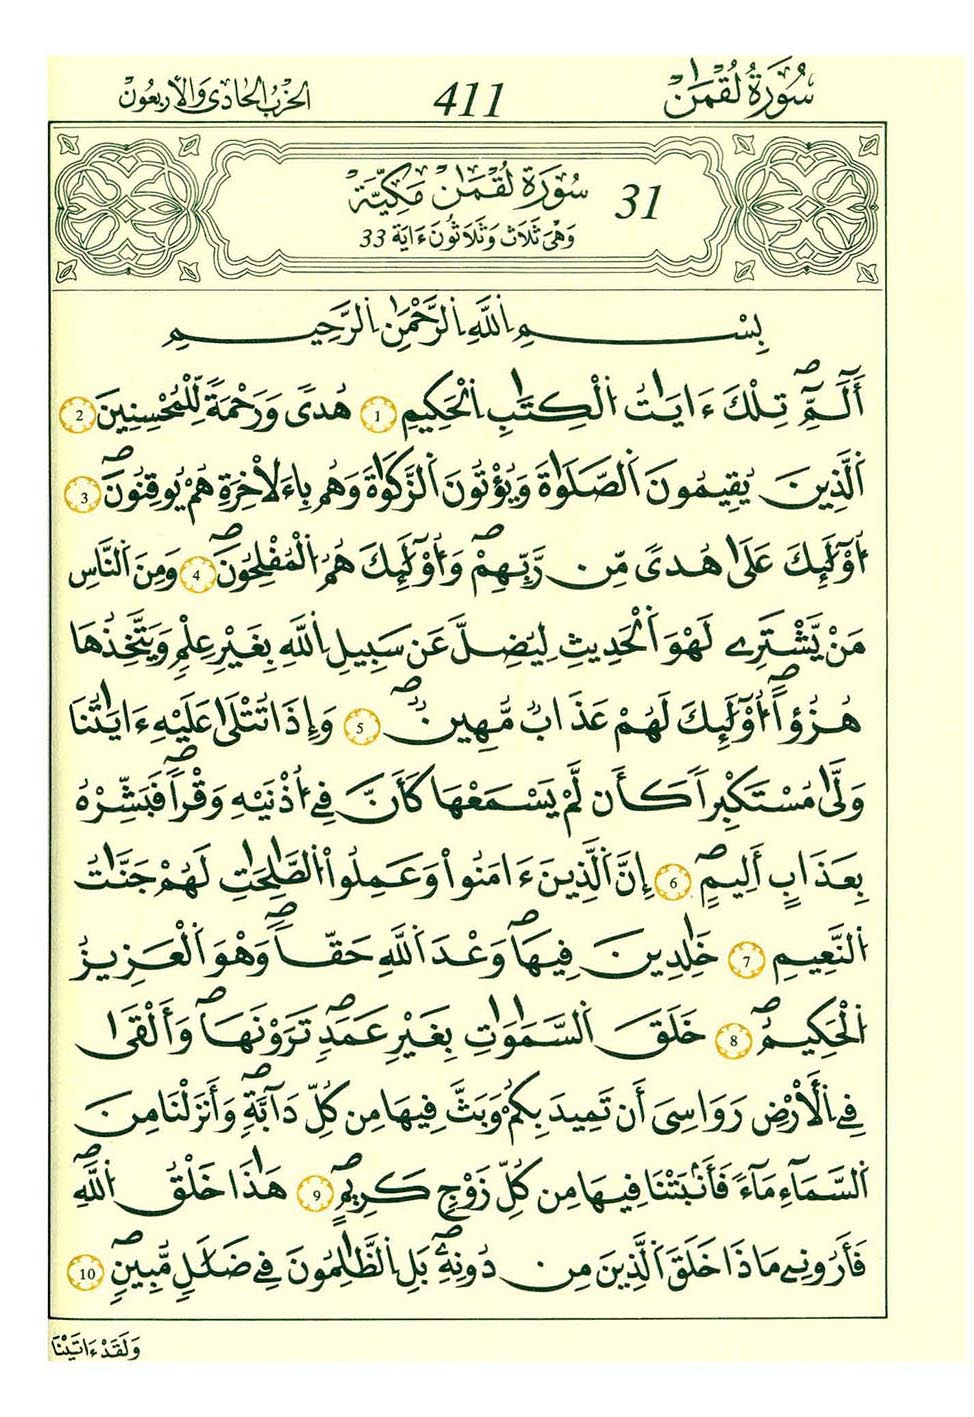 سُورَةُ لُقْمَٰنَ 411 الحِزْبُ الحَادِي وَالأَرْبَعُونَ
31 سُورَةُ لُقْمَٰنَ مَكِّيَّة
وَهْيَ ثَلَاثٌ وَثَلَاثُونَ ءَايَة 33
بِسْمِ اِللَّهِ اِلرَّحْمَٰنِ اِلرَّحِيمِ
أَلَٓمِّٓۖ تِلْكَ ءَايَٰتُ اُلْكِتَٰبِ اِلْحَكِيمِ 1 هُدىً وَرَحْمَةً لِّلْمُحْسِنِينَ 2
اَلذِينَ يُقِيمُونَ اَلصَّلَوٰةَ وَيُؤْتُونَ اَلزَّكَوٰةَ وَهُم بِالَاخِرَةِ هُمْ يُوقِنُونَۖ 3
أُوْلَٰٓئِكَ عَلَىٰ هُدىً مِّن رَّبِّهِمْۖ وَأُوْلَٰٓئِكَ هُمُ اُلْمُفْلِحُونَۖ 4 وَمِنَ اَلنَّاسِ
مَنْ يَّشْتَرِے لَهْوَ اَلْحَدِيثِ لِيُضِلَّ عَن سَبِيلِ اِللَّهِ بِغَيْرِ عِلْمٍ وَيَتَّخِذُهَا
هُزُؤاًۖ اُوْلَٰٓئِكَ لَهُمْ عَذَابٌ مُّهِينٌۖ 5 وَإِذَا تُتْلَىٰ عَلَيْهِ ءَايَٰتُنَا
وَلَّىٰ مُسْتَكْبِراً كَأَن لَّمْ يَسْمَعْهَا كَأَنَّ فِے أُذْنَيْهِ وَقْراًۖ فَبَشِّرْهُ
بِعَذَابٍ أَلِيمٍۖ 6 إِنَّ اَلذِينَ ءَامَنُواْ وَعَمِلُواْ اُلصَّٰلِحَٰتِ لَهُمْ جَنَّٰتُ
اُلنَّعِيمِ 7 خَٰلِدِينَ فِيهَاۖ وَعْدَ اَللَّهِ حَقّاًۖ وَهْوَ اَلْعَزِيزُ
اُلْحَكِيمُۖ 8 خَلَقَ اَلسَّمَٰوَٰتِ بِغَيْرِ عَمَدٍۖ تَرَوْنَهَاۖ وَأَلْقَىٰ
فِے اِلْأَرْضِ رَوَاسِيَ أَن تَمِيدَ بِكُمْ وَبَثَّ فِيهَا مِن كُلِّ دَآبَّةٍۖ وَأَنزَلْنَا مِنَ
اَلسَّمَآءِ مَآءً فَأَنۢبَتْنَا فِيهَا مِن كُلِّ زَوْجٍ كَرِيمٍۖ 9 هَٰذَا خَلْقُ اُللَّهِۖ
فَأَرُونِے مَاذَا خَلَقَ اَلذِينَ مِن دُونِهِۦۖ بَلِ اِلظَّٰلِمُونَ فِے ضَلَٰلٍ مُّبِينٍۖ 10
وَلَقَدْ ءَاتَيْنَا